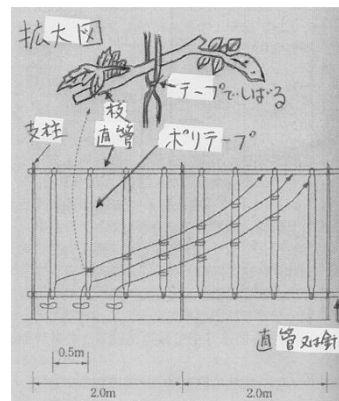 拡大図
テープでしばる
枝
支柱
直管
ポリテープ
直管又は針
0.5m
2.0m
2.0m